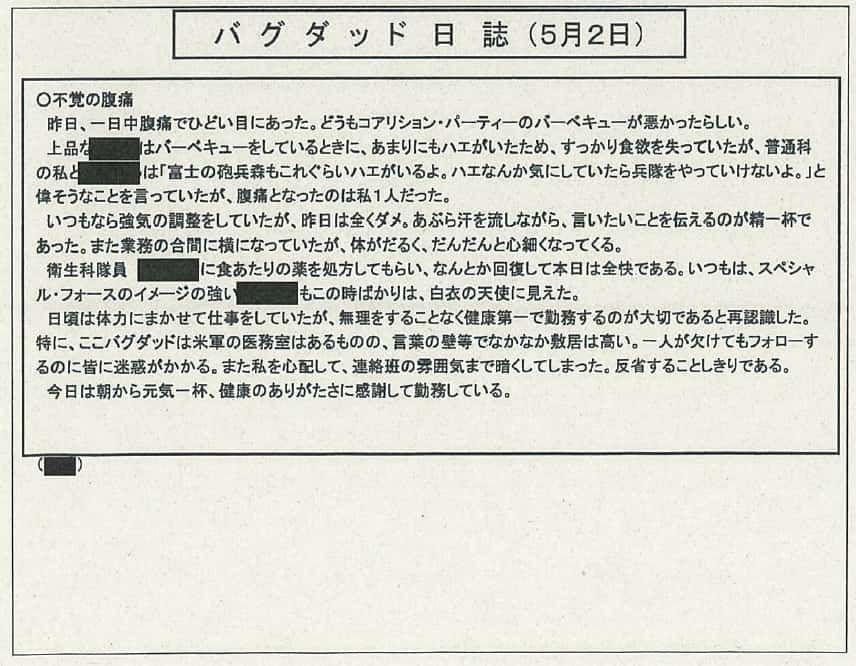 バグダッド日誌（５月２日）
○不覚の腹痛
昨日、一日中腹痛でひどい目にあった。どうもコアリション・パーティーのバーベキューが悪かったらしい。
上品な はバーベキューをしているときに、あまりにもハエがいたため、すっかり食欲を失っていたが、普通科
の私と は「富士の砲兵森もこれぐらいハエがいるよ。ハエなんか気にしていたら兵隊をやっていけないよ。」と
偉そうなことを言っていたが、腹痛となったのは私１人だった。
いつもなら強気の調整をしていたが、昨日は全くダメ。あぶら汗を流しながら、言いたいことを伝えるのが精一杯で
あった。また業務の合間に横になっていたが、体がだるく、だんだんと心細くなってくる。
衛生科隊員 に食あたりの薬を処方してもらい、なんとか回復して本日は全快である。いつもは、スペシャ
ル・フォースのイメージの強い もこの時ばかりは、白衣の天使に見えた。
日頃は体力にまかせて仕事をしていたが、無理をすることなく健康第一で勤務するのが大切であると再認識した。
特に、ここバグダッドは米軍の医務室はあるものの、言葉の壁等でなかなか敷居は高い。一人が欠けてもフォローす
るのに皆に迷惑がかかる。また私を心配して、連絡班の雰囲気まで暗くしてしまった。反省することしきりである。
今日は朝から元気一杯、健康のありがたさに感謝して勤務している。
( )